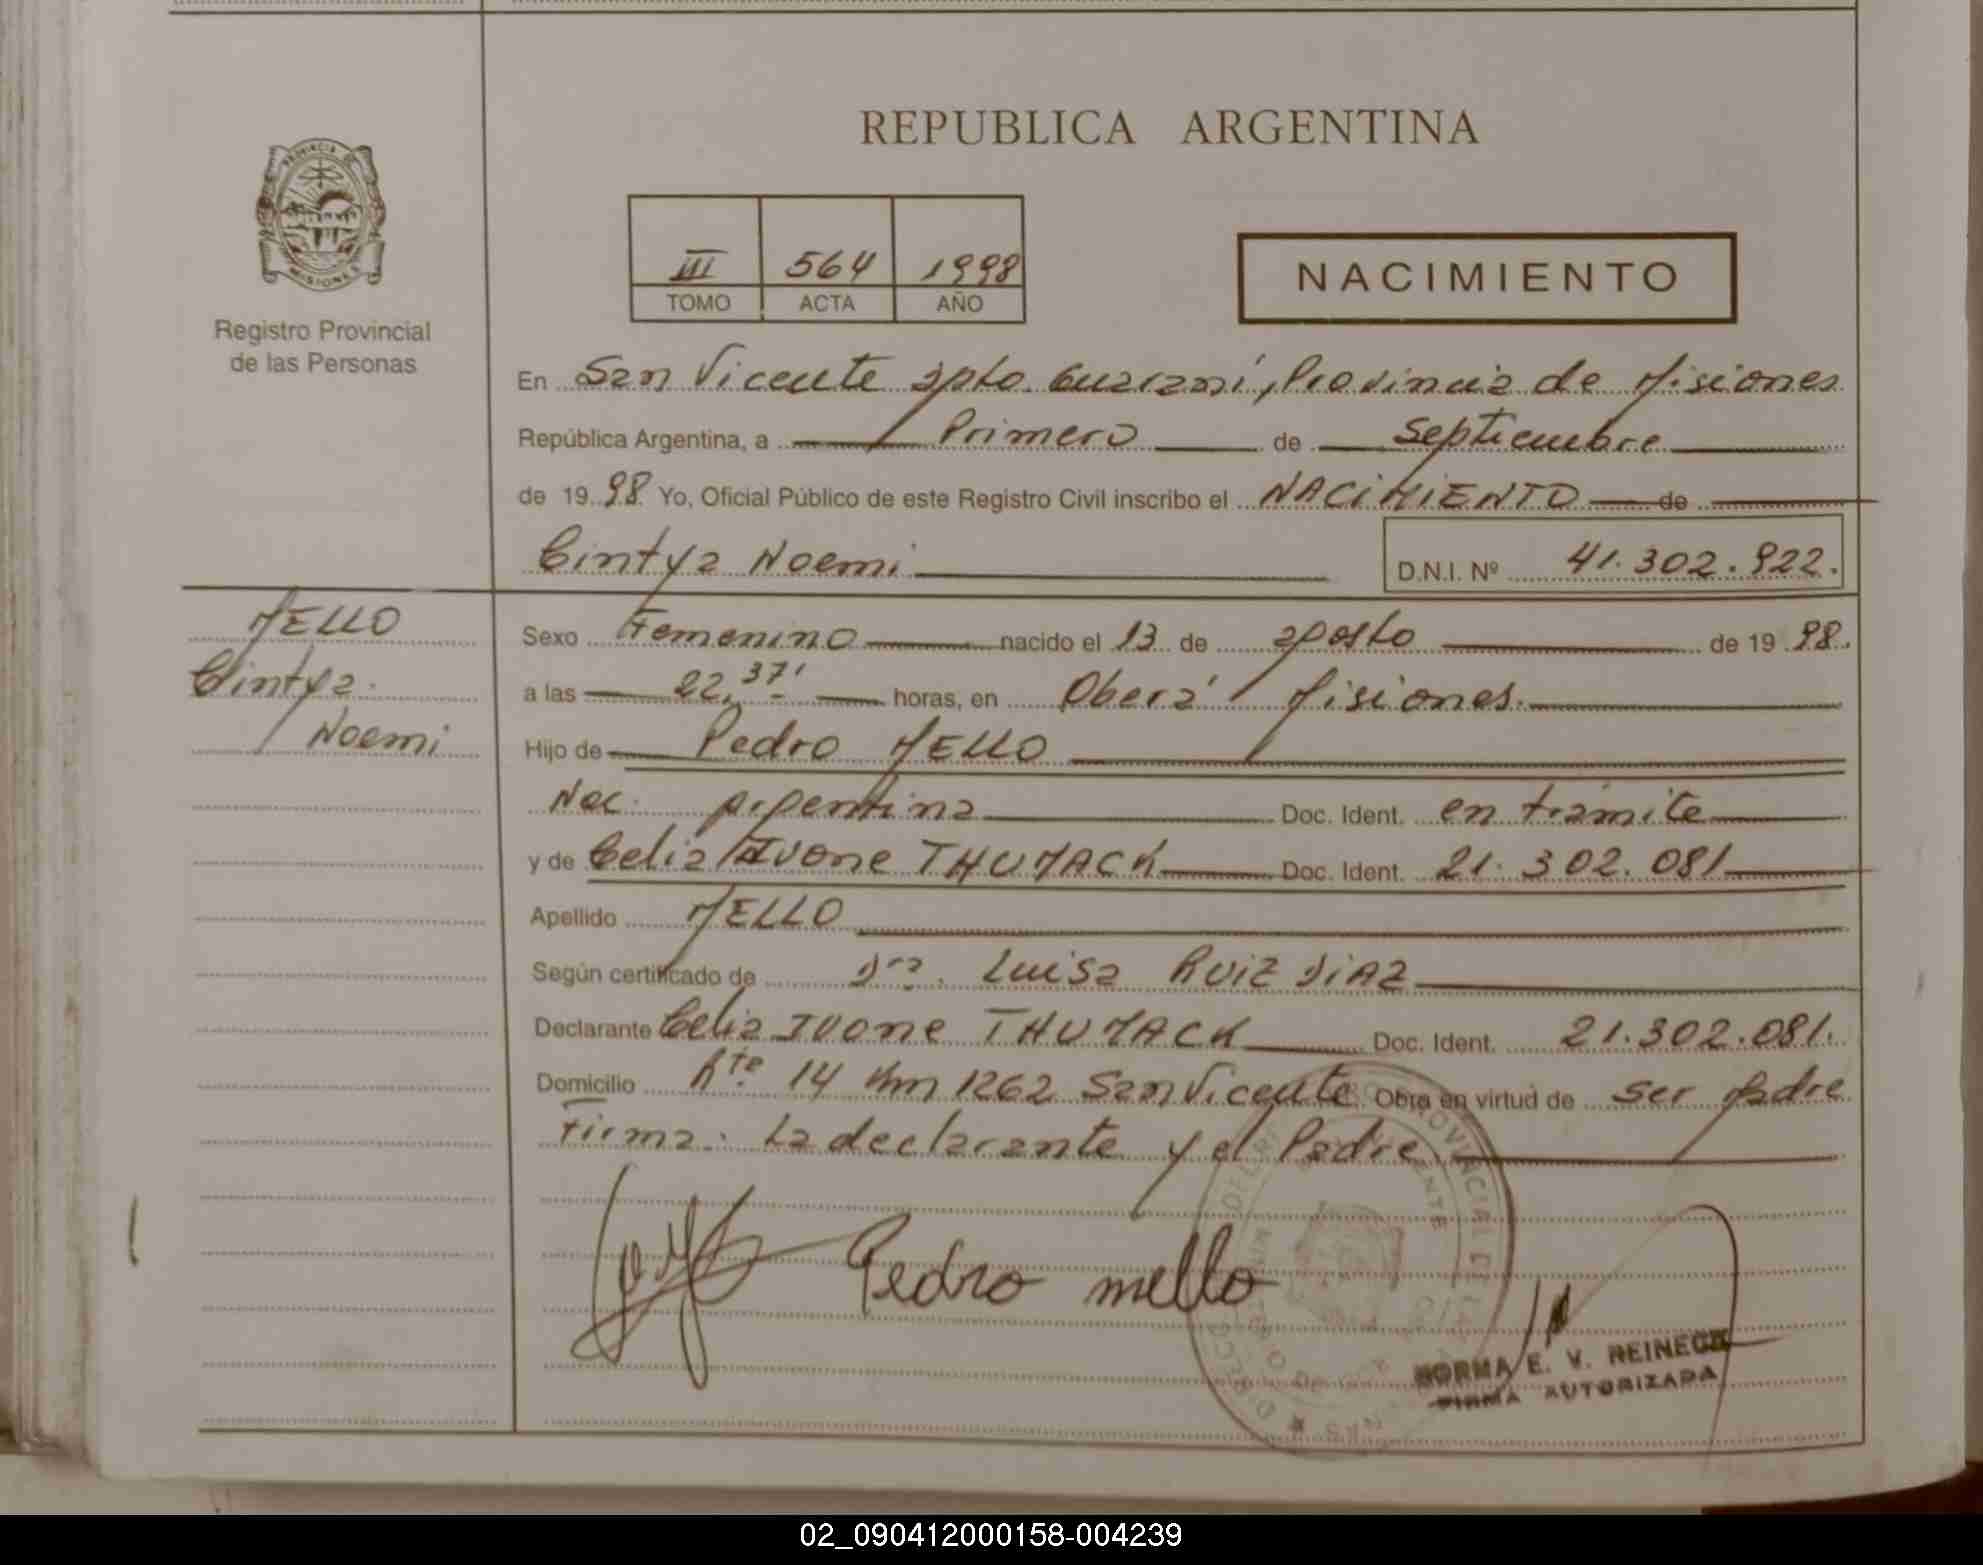 REPUBLICA ARGENTINA
PROVINCIA DE
MISIONES
Registro Provincial
de las Personas
III 564 1998
TOMO ACTA AÑO
NACIMIENTO
En San Vicente Dpto. Guaraní, Provincia de Misiones
República Argentina, a Primero de Septiembre
de 1998 Yo, Oficial Público de este Registro Civil inscribo el NACIMIENTO de
Cintya Noemi D.N.I. Nº 41.302.922.
MELLO
Cintya
Noemi
Sexo Femenino nacido el 13 de agosto de 1998.
a las 22,37' horas, en Oberá Misiones.
Hijo de Pedro MELLO
Nac. Argentina Doc. Ident. en trámite
y de Celia Ivone THUMACK Doc. Ident. 21.302.081
Apellido MELLO
Según certificado de Dra. Luisa RUIZ DIAZ
Declarante Celia Ivone THUMACK Doc. Ident. 21.302.081.
Domicilio Rte 14 Km 1262 San Vicente. Obra en virtud de ser Madre
Firma: La declarante y el Padre
Pedro mello
NORMA E. V. REINECK
FIRMA AUTORIZADA
02_090412000158-004239